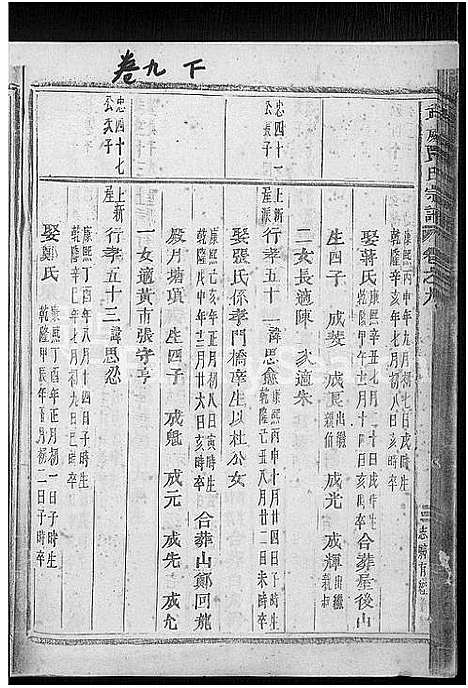 卷九 下
賈氏宗譜 卷之九
康熙丙申年九月初七日戌時生
乾隆辛亥年七月初八日亥時卒
娶蔣氏
康熙辛丑七月二十日戌時生
合葬屋後山
生四子 成 成 出繼 成光 成輝 出繼
二女長適陳 次適朱
忠四十一公長子
上新屋派
行孝五十一諱思愈
康熙丙申十月廿四日子時生
乾隆丁丑八月廿二日未時卒
娶張氏係孝門橋庠生以杜公女
乾隆戊申十二月廿六日亥時卒
合葬山鄭回龍
殿月塘項 生四子 成魁 成元 成先 成允
一女適黃市張守亨
忠四十七公次子
上新屋
行孝五十三諱思忍
康熙丁酉年八月十四日子時生
乾隆辛巳年九月初九日巳時卒
娶鄭氏
康熙丁酉年正月初一日子時生
乾隆甲辰年五月初二日子時卒